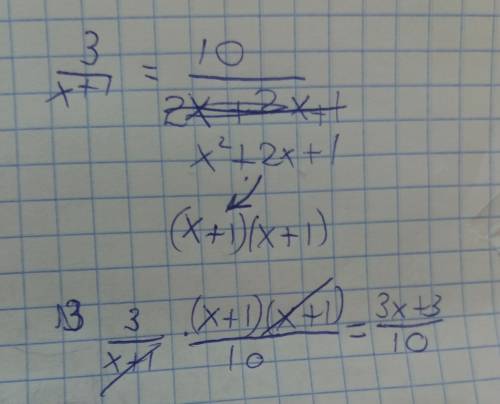 3/(x+1) = 10/(x²+2x+1)
(x+1)(x+1)
3/(x+1) · (x+1)(x+1)/10 = (3x+3)/10